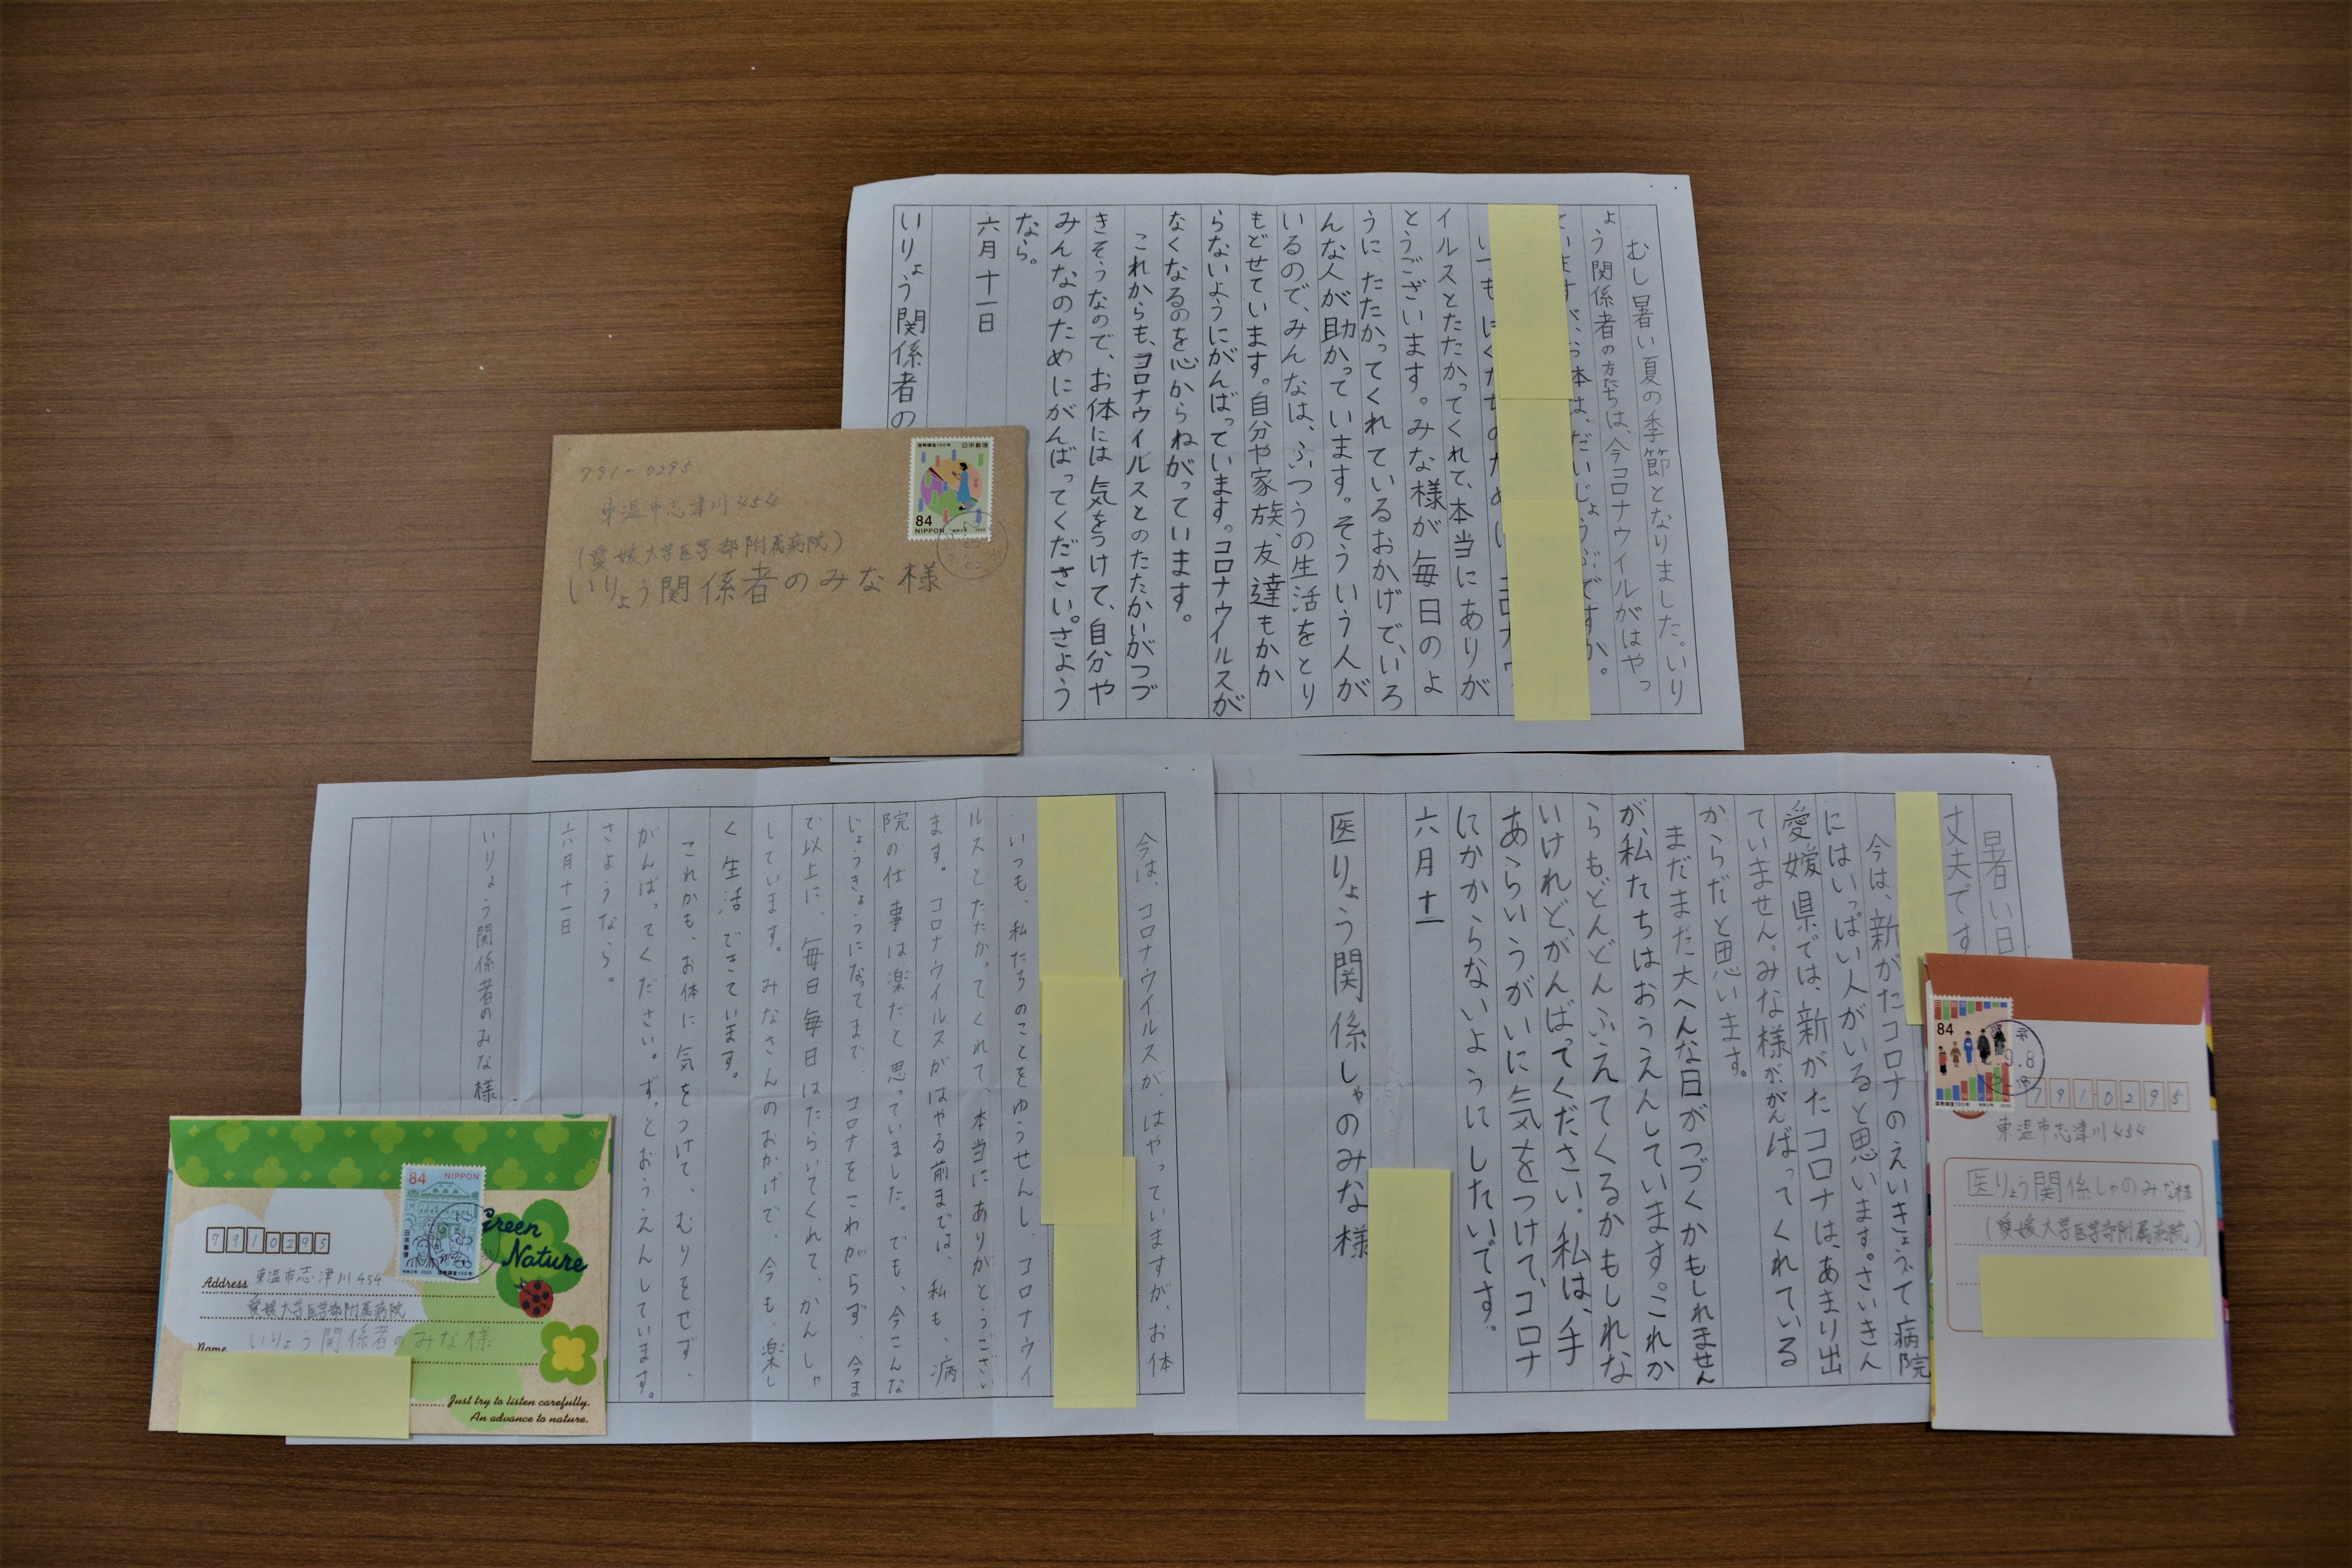 むし暑い夏の季節となりました。いり
ょう関係者の方たちは、今コロナウイルがはやっ
ていますが、お体は、だいじょうぶですか。
いつもぼくたちのために コロナウ
イルスとたたかってくれて、本当にありが
とうございます。みな様が毎日のよ
うにたたかってくれているおかげで、いろ
んな人が助かっています。そういう人が
いるので、みんなは、ふつうの生活をとり
もどせています。自分や家族、友達もかか
らないようにがんばっています。コロナウイルスが
なくなるのを心からねがっています。
これからも、コロナウイルスとのたたかいがつづ
きそうなので、お体には気をつけて、自分や
みんなのためにがんばってください。さよう
なら。
六月十一日
いりょう関係者の
791-0295
東温市志津川454
(愛媛大学医学部附属病院)
いりょう関係者のみな様
国勢調査100年 日本郵便
84
NIPPON
暑い日
丈夫です
今は、新がたコロナのえいきょうで病院
にはいっぱい人がいると思います。さいきん
愛媛県では、新がたコロナは、あまり出
ていません。みな様ががんばってくれている
からだと思います。
まだまだ大へんな日がつづくかもしれません
が、私たちはおうえんしています。これか
らもどんどんふえてくるかもしれな
いけれど、がんばってください。私は、手
あらいうがいに気をつけて、コロナ
にかからないようにしたいです。
六月十一
医りょう関係しゃのみな様
84
国勢調査100年 令和2年 2020
9.8
7910295
東温市志津川454
医りょう関係しゃのみな様
(愛媛大学医学部附属病院)
今は、コロナウイルスが、はやっていますが、お体
いつも、私たちのことをゆうせんし、コロナウイ
ルスとたたかってくれて、本当にありがとうござい
ます。コロナウイルスがはやる前までは、私も、病
院の仕事は楽だと思っていました。でも、今こんな
じょうきょうになってまで コロナをこわがらず、今ま
で以上に、毎日毎日はたらいてくれて、かんしゃ
しています。みなさんのおかげで、今も、楽し
く生活できています。
これかも、お体に気をつけて、むりをせず、
がんばってください。ずっとおうえんしています。
さようなら。
六月十一日
いりょう関係者のみな様
84 NIPPON
日本郵便
令和2年 2020 国勢調査100年
Green
Nature
7910295
Address 東温市志津川454
愛媛大学医学部附属病院
Name いりょう関係者のみな様
Just try to listen carefully.
An advance to nature.